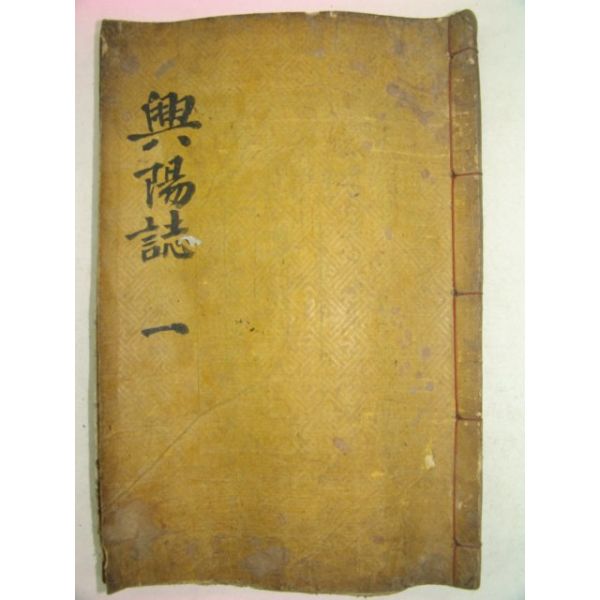 興陽誌 一